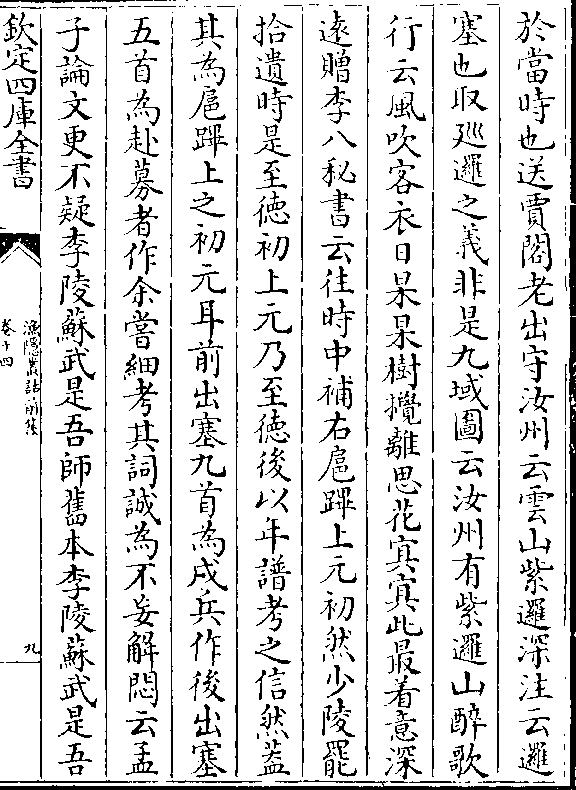 於當時也送賈閣老出守汝州云雲山紫邏深注云邏
塞也取廵邏之義非是九域圖云汝州有紫邏山醉歌
行云風吹客衣日杲杲樹攪離思花㝠㝠此最着意深
遠贈李八秘書云往時中補右扈蹕上元初然少陵罷
拾遺時是至徳初上元乃至徳後以年譜考之信然葢
其為扈蹕上之初元耳前出塞九首為戍兵作後出塞
五首為赴募者作余嘗細考其詞誠為不妄解悶云孟
子論文更不疑李陵蘇武是吾師舊本李陵蘇武是吾
欽定四庫全書
漁隱叢話前集
卷十四
九